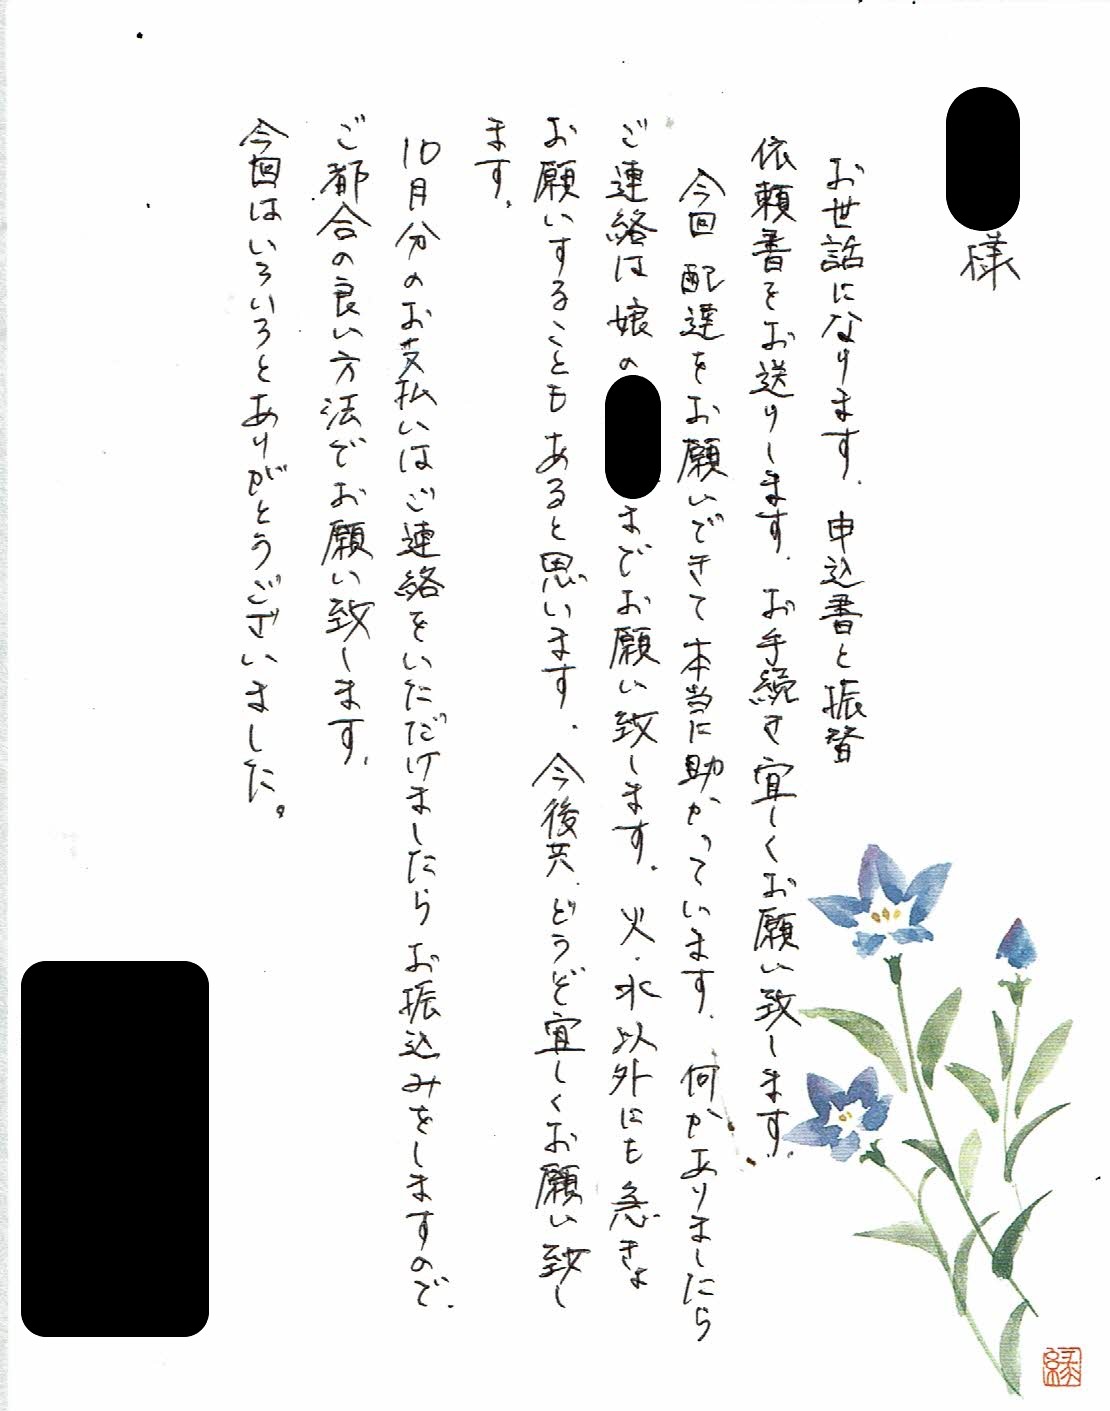 様
お世話になります。申込書と振替
依頼書をお送りします。お手続き宜しくお願い致します。
今回配達をお願いできて本当に助かっています。何かありましたら
ご連絡は娘の
までお願い致します。火・水以外にも急きょ
お願いすることもあると思います。今後共どうぞ宜しくお願い致し
ます。
10月分のお支払いはご連絡をいただけましたらお振込みをしますので、
ご都合の良い方法でお願い致します。
今回はいろいろとありがとうございました。
縁